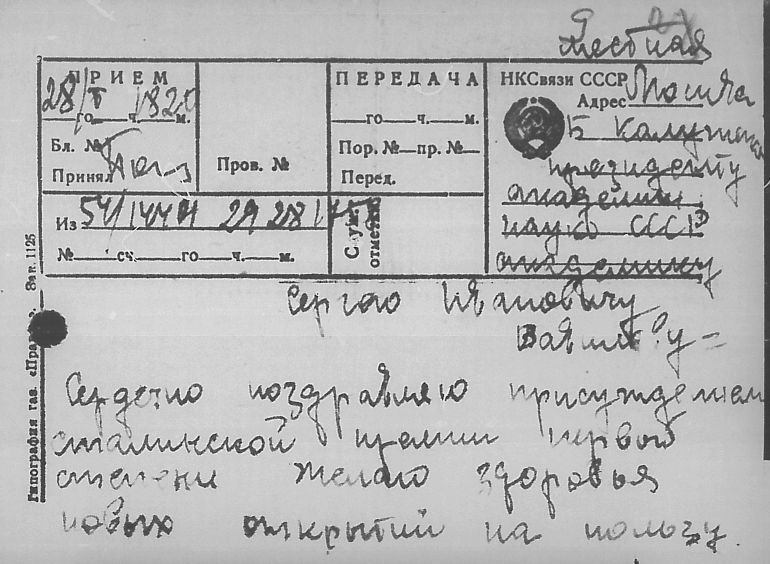 Местная
ПРИЕМ
28/I 1820
го ч. м.
Бл. №
Принял
Пров. №
ПЕРЕДАЧА
го ч. м.
Пор. № пр. №
Перед.
НКСвязи СССР
Адрес Москва
Б Калужская
президенту
академии
наук СССР
академику
Из 54/1444 29 28 1
№ сч. го ч. м.
Служ. отметки
Типография газ. «Правда». Зак. 1125
Сергею Ивановичу
Вавилову =
Сердечно поздравляю присуждением
сталинской премии первой
степени желаю здоровья
новых открытий на пользу